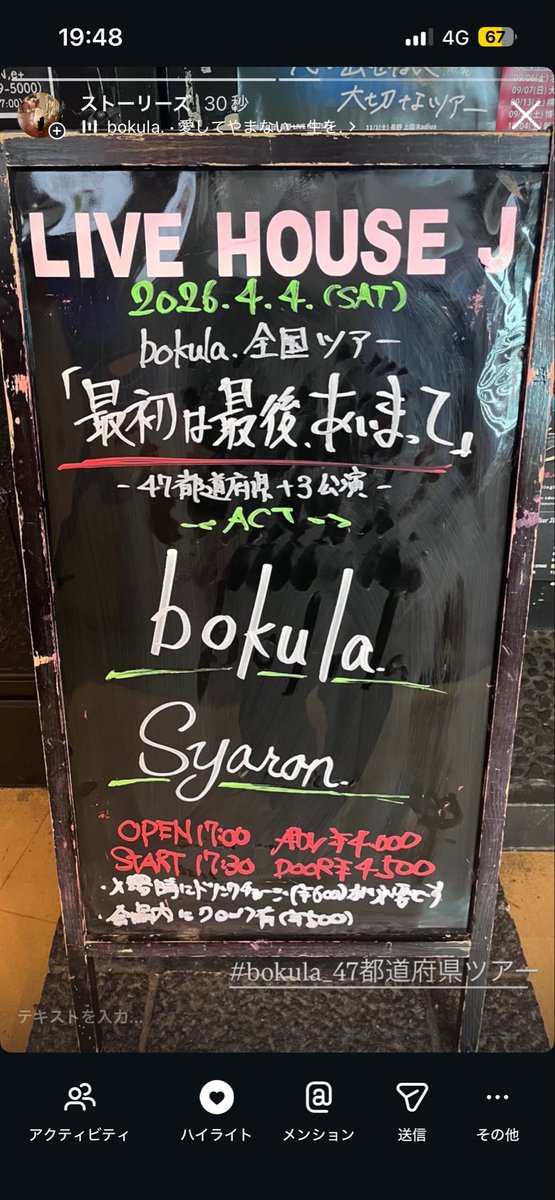 19:48
4G
67
ストーリーズ 30秒
bokula.・愛してやまない一生を.
大切なツアー
LIVE HOUSE J
2026.4.4.(SAT)
bokula.全国ツアー
「最初は最後、あいまって」
-47都道府県+3公演-
ACT
bokula.
Syaron.
OPEN 17:00 ADV ¥4.000
START 17:30 DOOR ¥4.500
・入場時にドリンクチャージ(¥600)が必要です
・会場内にクローク有(¥500)
#bokula_47都道府県ツアー
テキストを入力...
アクティビティ
ハイライト
メンション
送信
その他